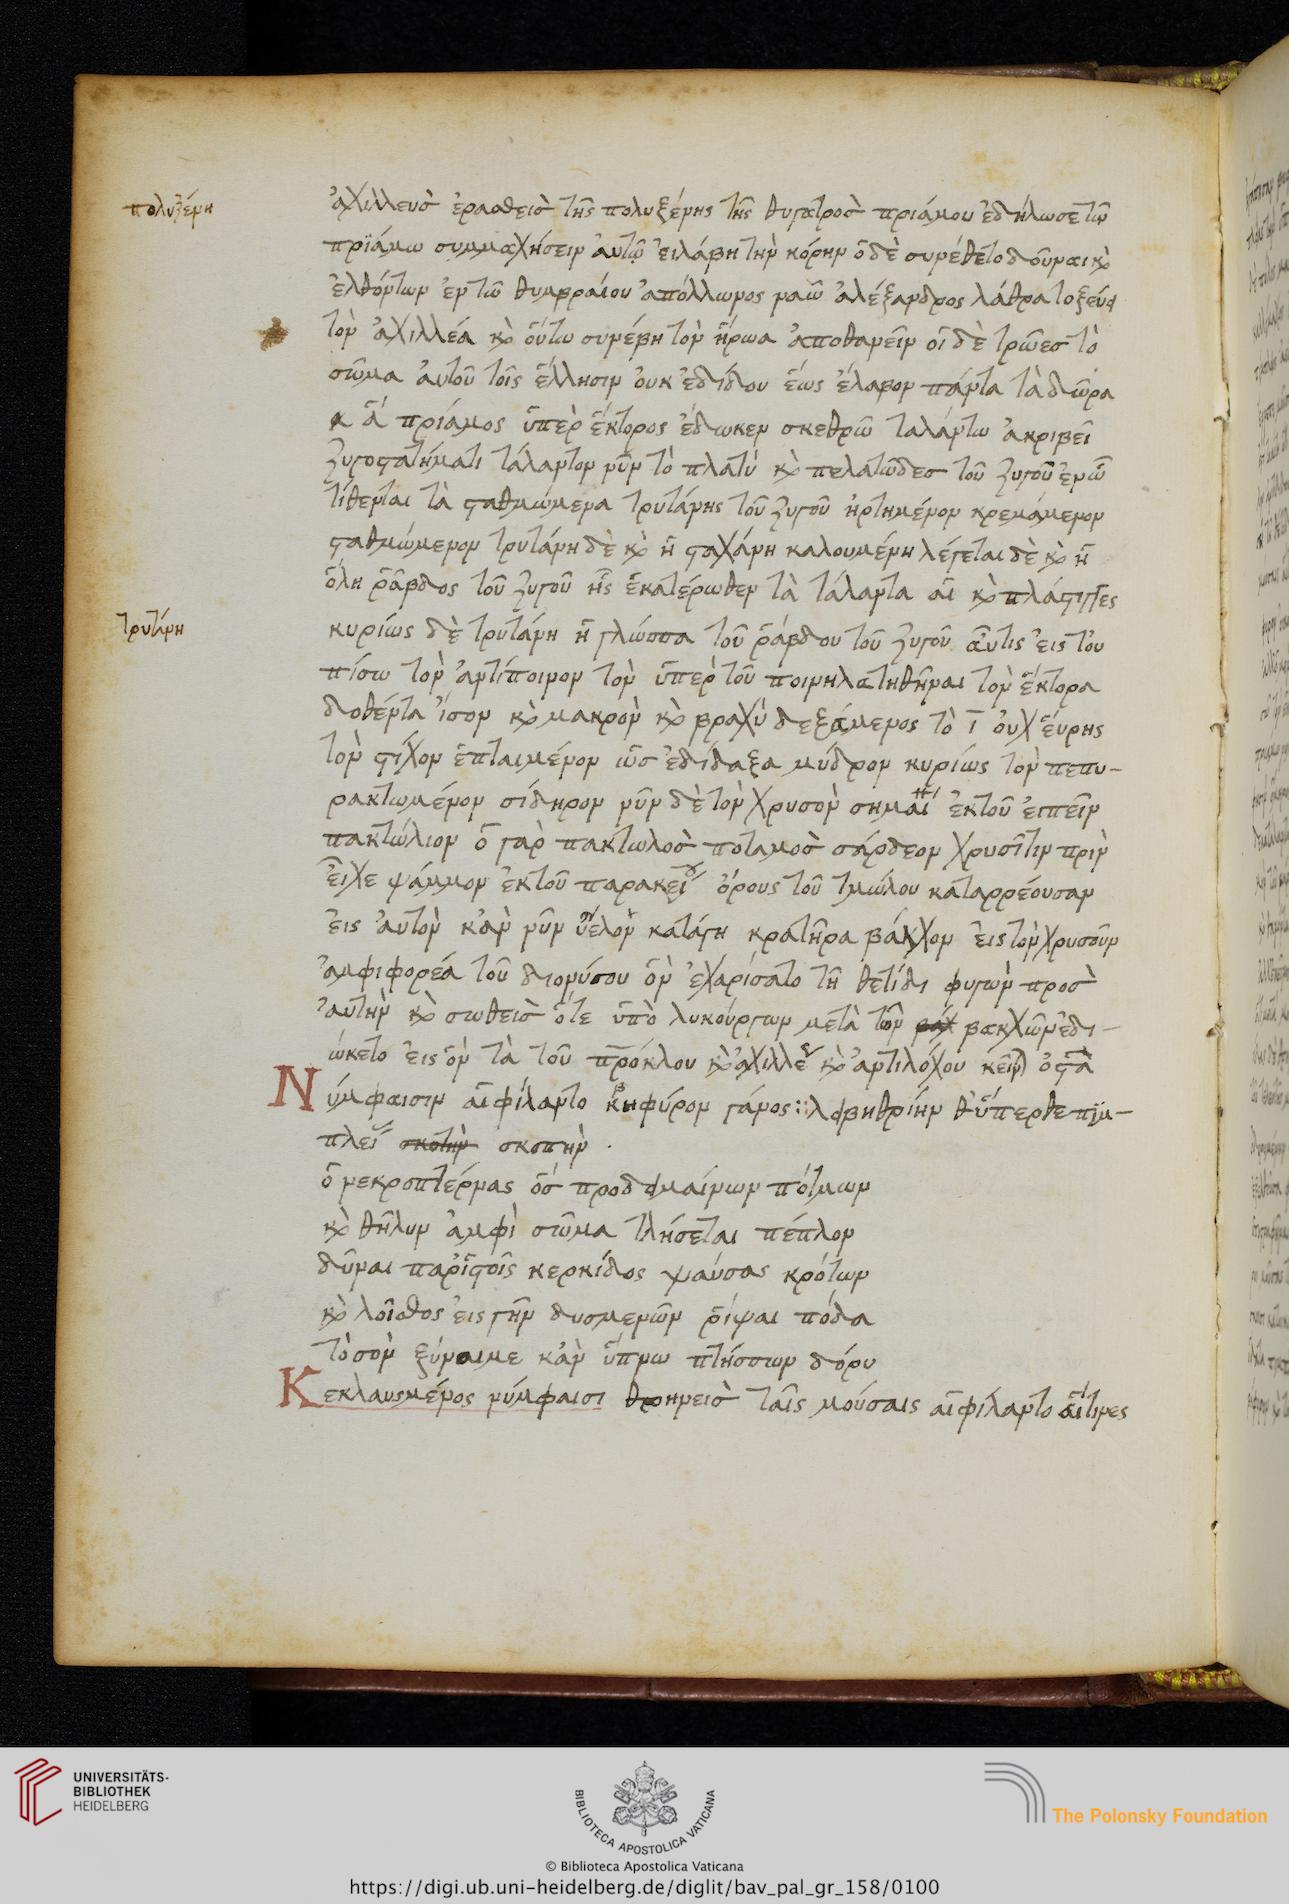 πολυξένη
ἀχιλλεὺσ ἐρασθεισ τῆς πολυξένης τῆς θυγατροσ πριάμου ἐδήλωσε τῶ
πριάμω συμμαχήσειν ἀυτῶ ἐι λάβη τὴν κόρην ὁ δὲ συνέθετο δοῦναι κὶ
ἐλθόντων ἐν τῶ θυμβραίου ἀπόλλωνος ναῶ ἀλέξανδρος λάθρα τοξεύει
τὸν ἀχιλλέα κὶ οὕτω συνέβη τὸν ἥρωα ἀποθανεῖν οἱ δὲ τρῶεσ τὸ
σῶμα ἀυτοῦ τοῖς ἕλλησιν ὀυκ ἐδίδου ἕως ἔλαβον πάντα τὰ δῶρα
ἃ πριάμος ὑπὲρ ἕκτορος ἔδωκεν σκεθρῶ ταλάντω ἀκριβεῖ
ζυγοστατήματι τάλαντον νῦν τὸ πλατὺ κὶ πελατῶδεσ τοῦ ζυγοῦ ἐν ὧ
τίθενται τὰ σταθμώμενα τρυτάνης τοῦ ζυγοῦ ἠρτημένον κρεμάμενον
σταθμώμενον τρυτάνη δὲ κὶ ἡ σταχάνη καλουμένη λέγεται δὲ κὶ ἡ
ὅλη ῥᾶβδος τοῦ ζυγοῦ ἧς ἑκατέρωθεν τὰ τάλαντα αἱ κὶ πλάστιγγες
τρυτάνη
κυρίως δὲ τρυτάνη ἡ γλώσσα τοῦ ῥάβδου τοῦ ζυγοῦ αὖτις ἐις τὸυ
πίσω τὸν ἀντίποινον τὸν ὑπὲρ τοῦ ποινηλατηθῆναι τὸν ἕκτορα
δοθέντα ἴσον κὶ μακρὸν κὶ βραχὺ δεξάμενος τὸ ι ὀυχ ἕυρης
τὸν στίχον ἑπταιμένον ὡσ ἐδίδαξα μύδρον κυρίως τὸν πεπυ-
ρακτωμένον σίδηρον νῦν δὲ τὸν χρυσὸν σημαί ἐκ τοῦ ἐιπεῖν
πακτώλιον ὁ γαρ πακτωλοσ ποταμοσ σάρδεον χρυσῖτιν πριν
ἐιχε ψάμμον ἐκ τοῦ παρακει ὄρους τοῦ τμώλου καταρρέουσαν
ἐις ἀυτὸν κἀν νῦν ὑελὸν κατάγη κρατῆρα βάκχον ἐις τὸν χρυσοῦν
ἀμφιφορέα τοῦ διονύσου ὃν ἐχαρίσατο τῆ θετίδι φυγὼν προσ
ἀυτὴν κὶ σωθεισ ὅτε ὑπὸ λυκούργων μετὰ τῶν βάχ βακχῶν ἐδι-
ώκετο ἐις ὃν τὰ τοῦ πρόκλου κὶ ἀχιλλε κὶ ἀντιλόχου κεῖν ὀστᾶ
Νύμφαισιν αἳ φίλαντο κηφύρον γάνος: λφβηθρίην θ' ὕπερθε πιμ-
πλεί σκοπὴν σκοπὴν .
ὁ νεκροπτέρνας ὅσ προδειμαίνων πότμων
κὶ θῆλυν ἀμφὶ σῶμα τλήσεται πέπλον
δῦναι παρ' ἱστοῖς κερκίδος ψαύσας κρότων
κὶ λοῖσθος ἐις γῆν δυσμενῶν ῥίψαι πόδα
τὸ σὸν ξύναιμε κἀν ὕπνω πτήσσων δόρυ
Κεκλαυσμένος νύμφαισι θρηνεισ ταῖς μούσαις αἳ φίλαντο αἵτινες
UNIVERSITÄTS-
BIBLIOTHEK
HEIDELBERG
BIBLIOTECA APOSTOLICA VATICANA
The Polonsky Foundation
© Biblioteca Apostolica Vaticana
https://digi.ub.uni-heidelberg.de/diglit/bav_pal_gr_158/0100